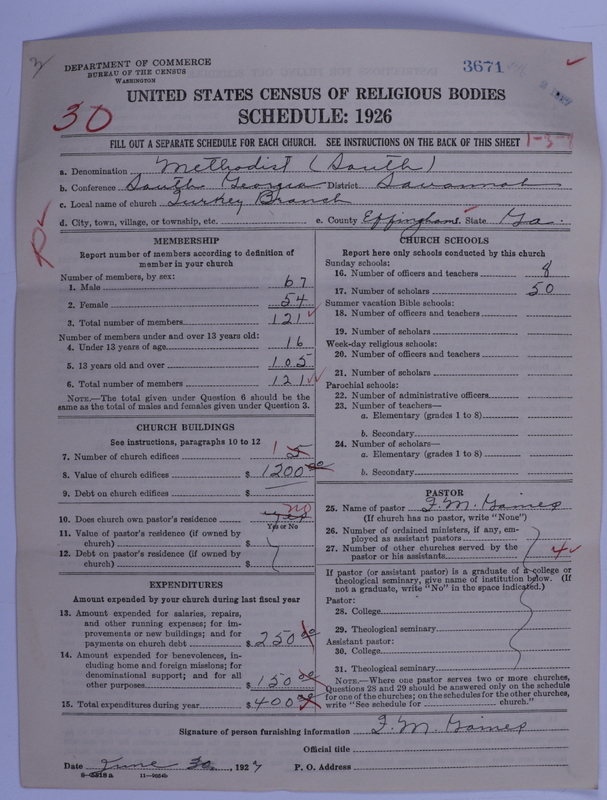 DEPARTMENT OF COMMERCE
BUREAU OF THE CENSUS
WASHINGTON
3671
UNITED STATES CENSUS OF RELIGIOUS BODIES
SCHEDULE: 1926
30
FILL OUT A SEPARATE SCHEDULE FOR EACH CHURCH. SEE INSTRUCTIONS ON THE BACK OF THIS SHEET
1-3-
a. Denomination Methodist (South)
b. Conference South Georgia District Savannah
c. Local name of church Turkey Branch
d. City, town, village, or township, etc. e. County Effingham State Ga.
R
MEMBERSHIP
Report number of members according to definition of
member in your church
Number of members, by sex:
1. Male 67
2. Female 54
3. Total number of members 121
Number of members under and over 13 years old:
4. Under 13 years of age 16
5. 13 years old and over 105
6. Total number of members 121
NOTE.—The total given under Question 6 should be the
same as the total of males and females given under Question 3.
CHURCH BUILDINGS
See instructions, paragraphs 10 to 12
7. Number of church edifices 1 5
8. Value of church edifices $ 1200 00
9. Debt on church edifices $
10. Does church own pastor's residence yes no
Yes or No
11. Value of pastor's residence (if owned by
church) $
12. Debt on pastor's residence (if owned by
church) $
EXPENDITURES
Amount expended by your church during last fiscal year
13. Amount expended for salaries, repairs,
and other running expenses; for im-
provements or new buildings; and for
payments on church debt $ 250 00
14. Amount expended for benevolences, in-
cluding home and foreign missions; for
denominational support; and for all
other purposes $ 150 00
15. Total expenditures during year $ 400 00
CHURCH SCHOOLS
Report here only schools conducted by this church
Sunday schools:
16. Number of officers and teachers 8
17. Number of scholars 50
Summer vacation Bible schools:
18. Number of officers and teachers
19. Number of scholars
Week-day religious schools:
20. Number of officers and teachers
21. Number of scholars
Parochial schools:
22. Number of administrative officers
23. Number of teachers—
a. Elementary (grades 1 to 8)
b. Secondary
24. Number of scholars—
a. Elementary (grades 1 to 8)
b. Secondary
PASTOR
25. Name of pastor F. M. Gaines
(If church has no pastor, write "None")
26. Number of ordained ministers, if any, em-
ployed as assistant pastors
27. Number of other churches served by the
pastor or his assistants 4
If pastor (or assistant pastor) is a graduate of a college or
theological seminary, give name of institution below. (If
not a graduate, write "No" in the space indicated.)
Pastor:
28. College
29. Theological seminary
Assistant pastor:
30. College
31. Theological seminary
NOTE.—Where one pastor serves two or more churches,
Questions 28 and 29 should be answered only on the schedule
for one of the churches; on the schedules for the other churches,
write "See schedule for church."
Signature of person furnishing information F. M. Gaines
Official title
Date June 30, 1927 P. O. Address
11-9554b